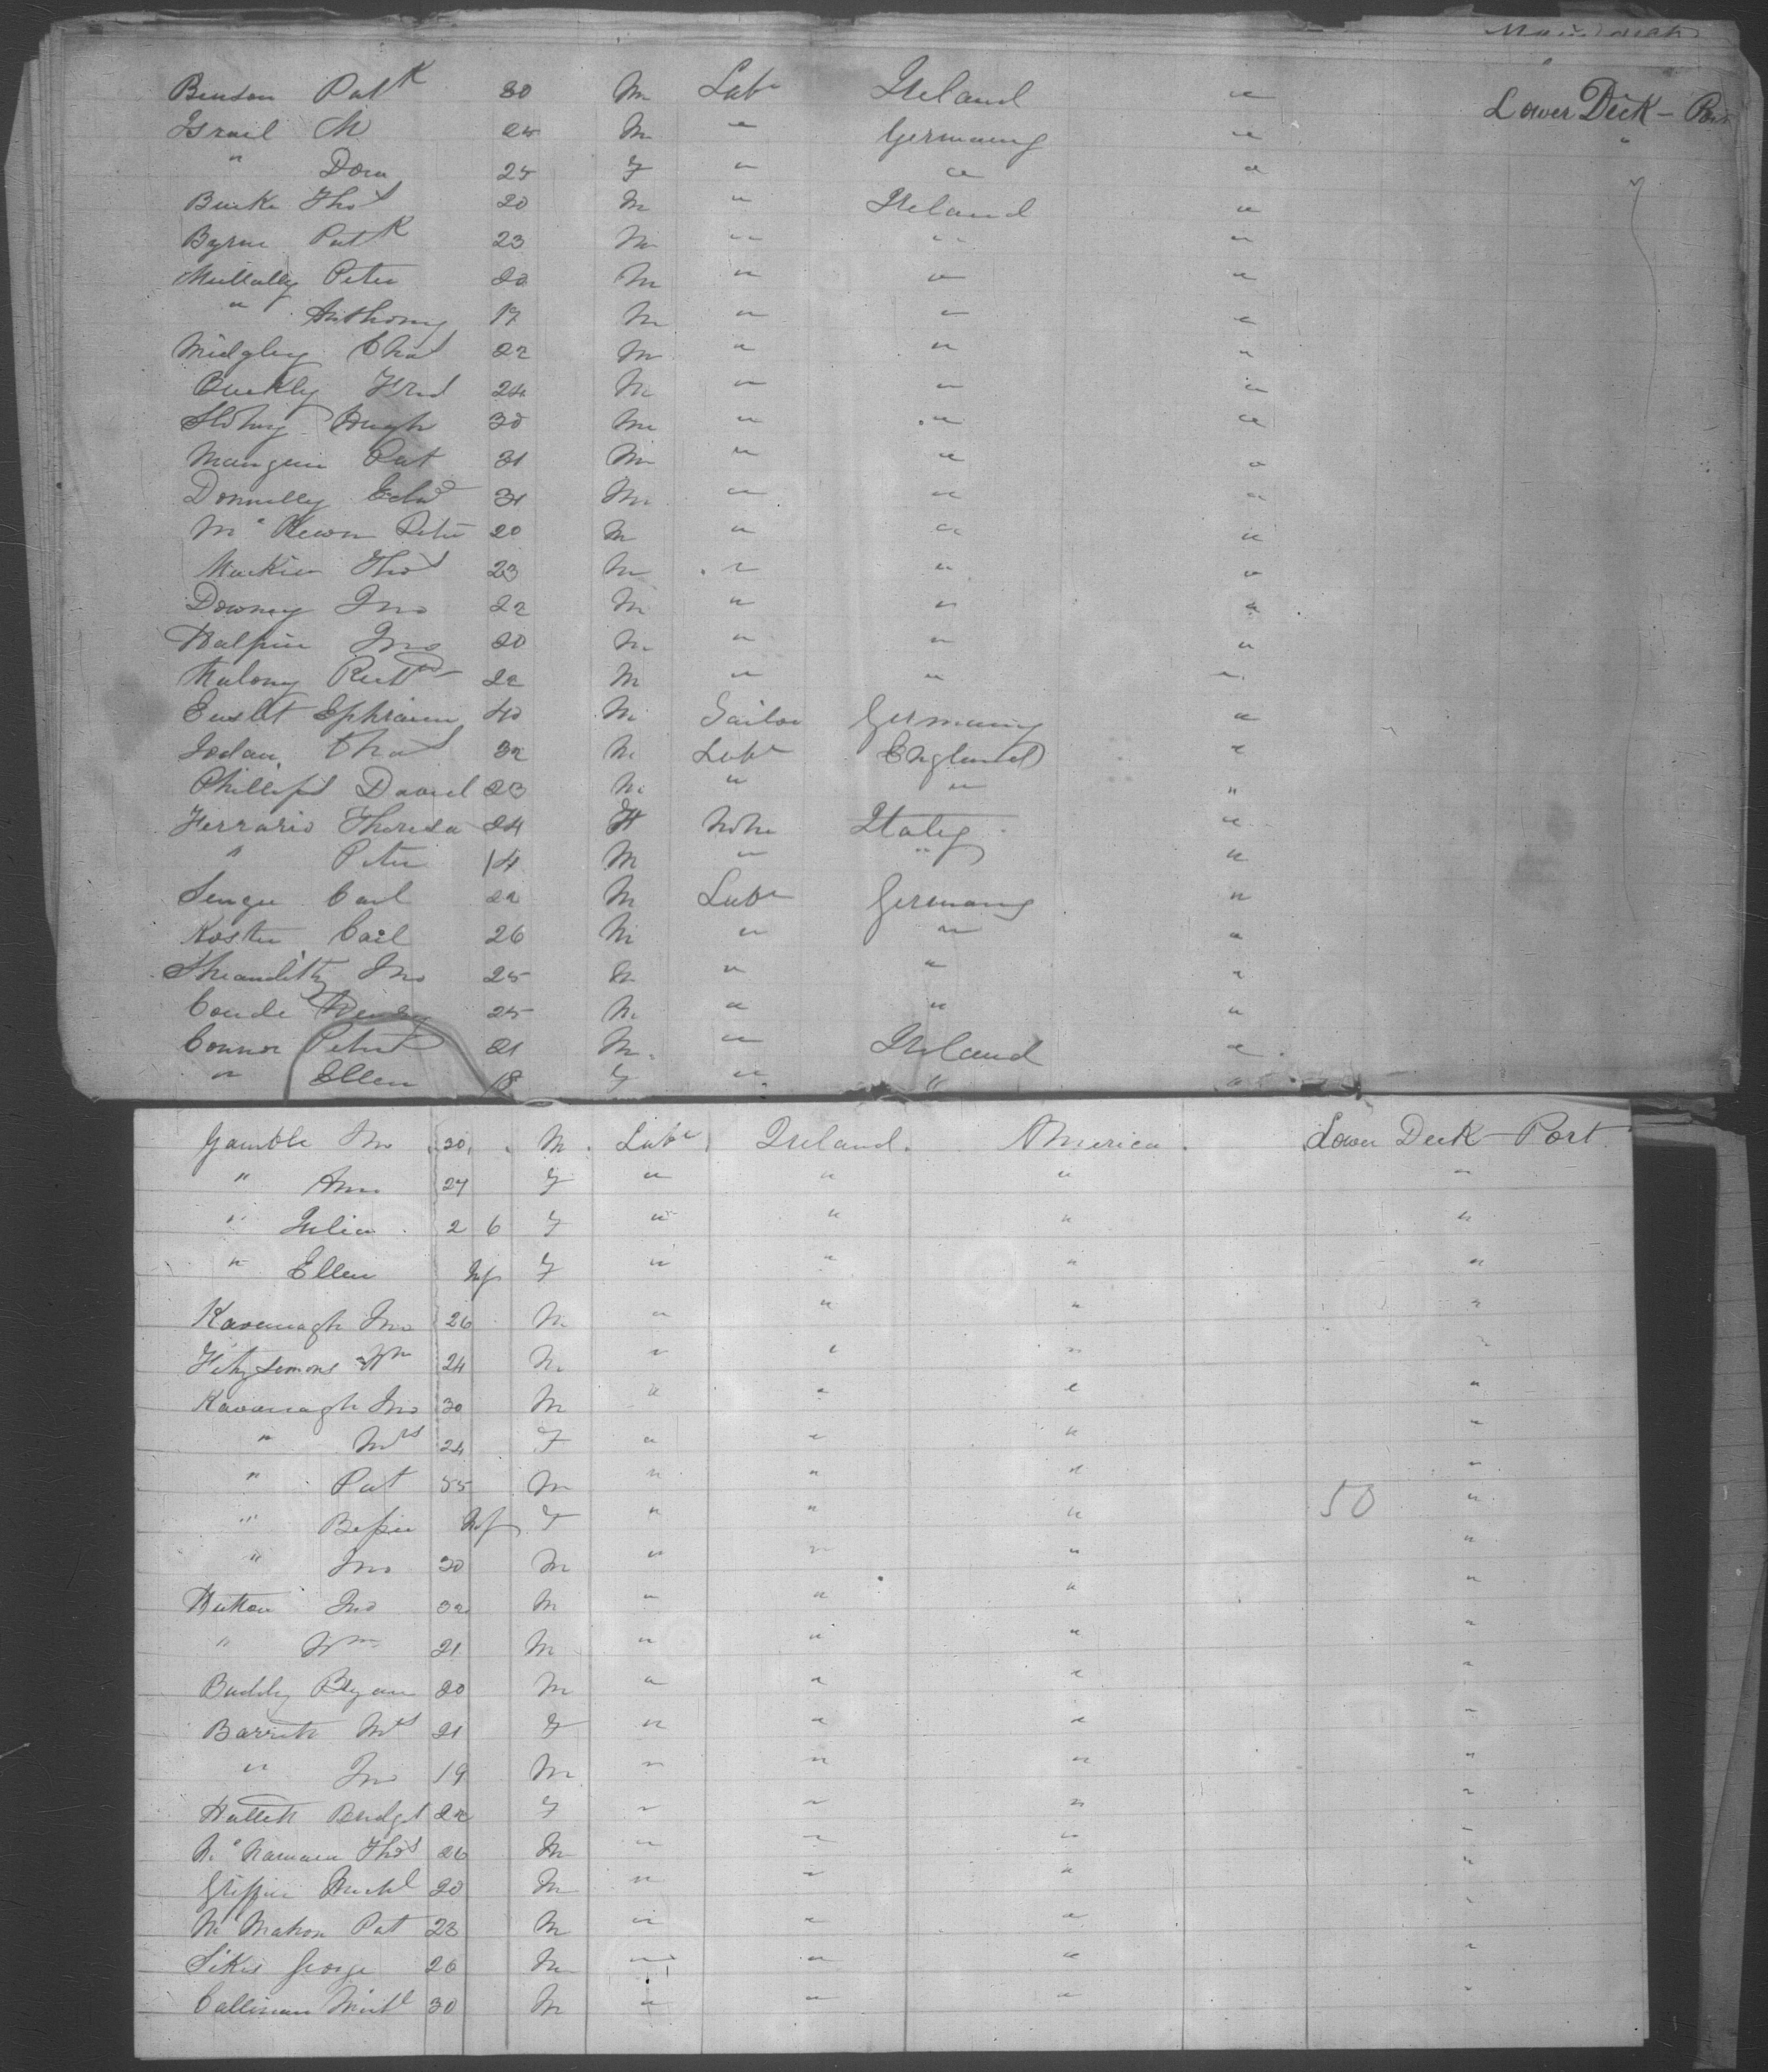 Main deck
Benson Patk 30 M Labr Ireland " Lower Deck - Port
Israel M 25 M " Germany " "
" Dora 25 F " " "
Burke Thos 20 M " Ireland "
Byrne Patk 23 M " " "
Mullally Peter 20 M " " "
" Anthony 19 M " " "
Midgley Chas 22 M " " "
Buckly Fred 24 M " " "
Hugh 30 M " " "
Mangan Pat 31 M " " "
Donnelly Edwd 31 M " " "
McKeown Peter 20 M " " "
Thos 23 M " " "
Downey Jno 22 M " " "
Halpin Jno 20 M " " "
Malony Richd 22 M " " "
Ephraim 40 M Sailor Germany "
Chas 32 M Labr England "
Phillips David 23 M " " "
Ferrario Theresa 24 F None Italy "
" Peter 14 M " " "
Carl 22 M Labr Germany "
Koster Carl 26 M " " "
Jno 25 M " " "
25 M " " "
Connor 21 M " Ireland "
" Ellen 18 F " " "
Gamble Jno 30 M Labr Ireland America Lower Deck Port
" Ann 27 F " " " "
" Julia 2 6 F " " " "
" Ellen Inf F " " " "
Kavanagh Jno 26 M " " " "
Fitzsimons Wm 24 M " " " "
Kavanagh Jno 30 M " " " "
" Mrs 24 F " " " "
" Pat 55 M " " " "
" Bessie Inf F " " " 50 "
" Jno 30 M " " " "
Hutton Jno 32 M " " " "
" Wm 21 M " " " "
Bryan 20 M " " " "
Barrett Mrs 21 F " " " "
" Jno 19 M " " " "
Hallett Bridget 22 F " " " "
McNamara Thos 26 M " " " "
Griffin Michl 20 M " " " "
McMahon Pat 23 M " " " "
George 26 M " " " "
Callinan Michl 30 M " " " "